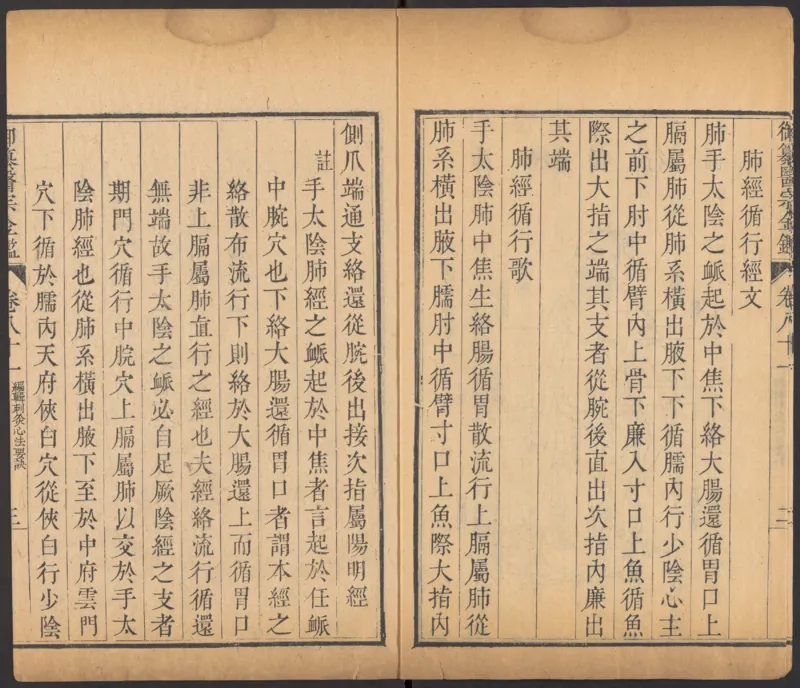 御纂醫宗金鑑
卷八十一
二
肺經循行經文
肺手太陰之脈起於中焦下絡大腸還循胃口上
膈屬肺從肺系橫出腋下下循臑內行少陰心主
之前下肘中循臂內上骨下廉入寸口上魚循魚
際出大指之端其支者從腕後直出次指內廉出
其端
肺經循行歌
手太陰肺中焦生絡腸循胃散流行上膈屬肺從
肺系橫出腋下臑肘中循臂寸口上魚際大指內
側爪端通支絡還從腕後出接次指屬陽明經
註手太陰肺經之脈起於中焦者言起於任脈
中脘穴也下絡大腸還循胃口者謂本經之
絡散布流行下則絡於大腸還上而循胃口
非上膈屬肺直行之經也夫經絡流行循還
無端故手太陰之脈必自足厥陰經之支者
期門穴循行中脘穴上膈屬肺以交於手太
陰肺經也從肺系橫出腋下至於中府雲門
穴下循於臑內天府俠白穴從俠白行少陰
御纂醫宗金鑑
卷八十一
編輯刺灸心法要訣
三